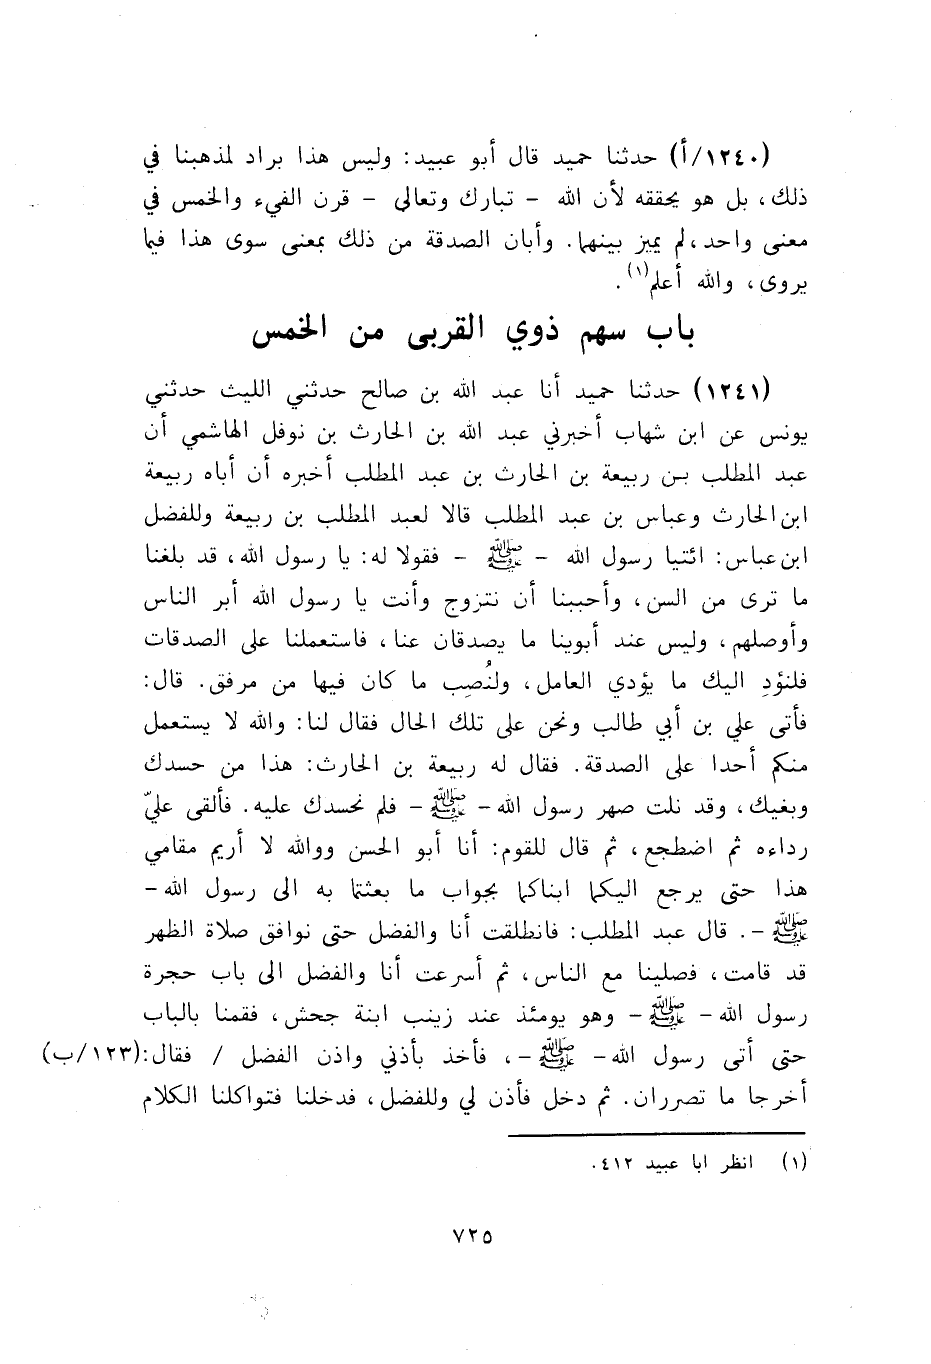 (١٢٤٠/أ) حدثنا حميد قال أبو عبيد: وليس هذا براد لمذهبنا في
ذلك، بل هو يحققه لأن الله - تبارك وتعالى - قرن الفيء والخمس في
معنى واحد، لم يميز بينهما. وأبان الصدقة من ذلك بمعنى سوى هذا فيما
يروى، والله أعلم(١).
باب سهم ذوي القربى من الخمس
(١٢٤١) حدثنا حميد أنا عبد الله بن صالح حدثني الليث حدثني
يونس عن ابن شهاب أخبرني عبد الله بن الحارث بن نوفل الهاشمي أن
عبد المطلب بن ربيعة بن الحارث بن عبد المطلب أخبره أن أباه ربيعة
ابن الحارث وعباس بن عبد المطلب قالا لعبد المطلب بن ربيعة وللفضل
ابن عباس: ائتيا رسول الله - ﷺ - فقولا له: يا رسول الله، قد بلغنا
ما ترى من السن، وأحببنا أن نتزوج وأنت يا رسول الله أبر الناس
وأوصلهم، وليس عند أبوينا ما يصدقان عنا، فاستعملنا على الصدقات
فلنؤدِ اليك ما يؤدي العامل، ولنُصِب ما كان فيها من مرفق. قال:
فأتى علي بن أبي طالب ونحن على تلك الحال فقال لنا: والله لا يستعمل
منكم أحدا على الصدقة. فقال له ربيعة بن الحارث: هذا من حسدك
وبغيك، وقد نلت صهر رسول الله - ﷺ - فلم نحسدك عليه. فألقى عليّ
رداءه ثم اضطجع، ثم قال للقوم: أنا أبو الحسن ووالله لا أريم مقامي
هذا حتى يرجع اليكما ابناكما بجواب ما بعثتما به الى رسول الله -
ﷺ -. قال عبد المطلب: فانطلقت أنا والفضل حتى نوافق صلاة الظهر
قد قامت، فصلينا مع الناس، ثم أسرعت أنا والفضل الى باب حجرة
رسول الله - ﷺ - وهو يومئذ عند زينب ابنة جحش، فقمنا بالباب
حتى أتى رسول الله - ﷺ -، فأخذ بأذني واذن الفضل / فقال: (١٢٣/ب)
أخرجا ما تصرران. ثم دخل فأذن لي وللفضل، فدخلنا فتواكلنا الكلام
(١) انظر ابا عبيد ٤١٢.
٧٢٥